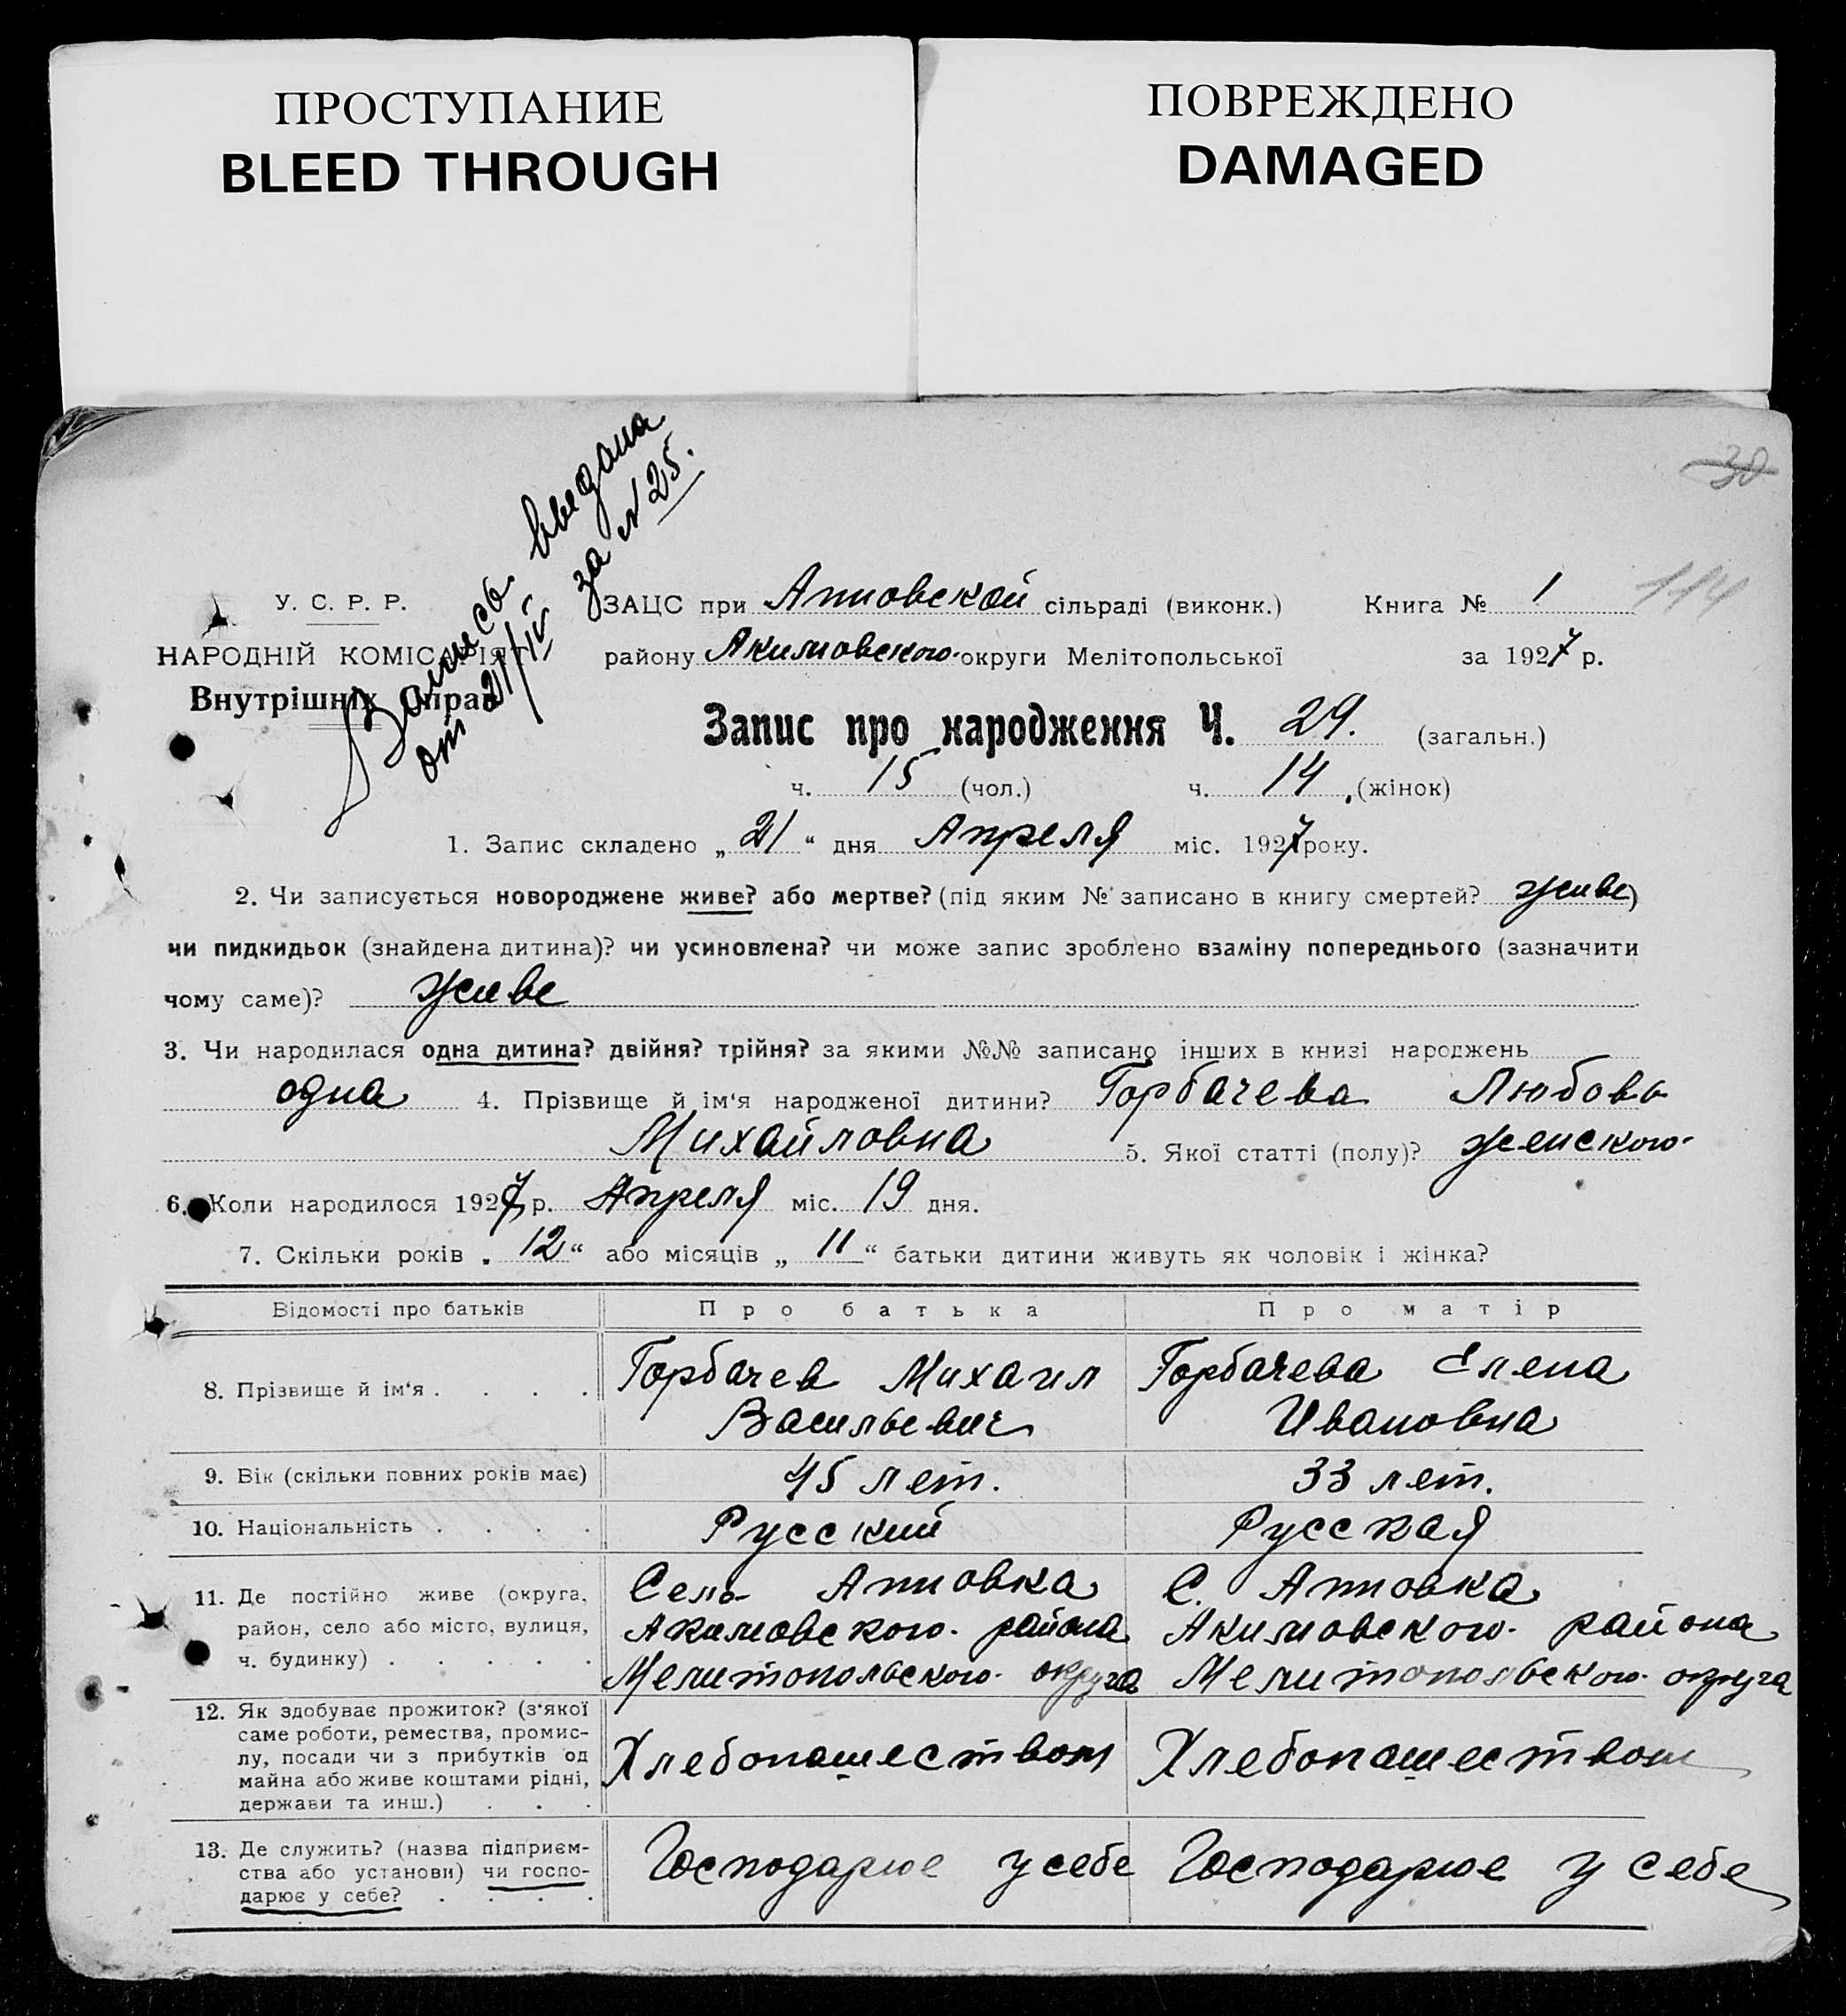 ПРОСТУПАНИЕ
BLEED THROUGH
ПОВРЕЖДЕНО
DAMAGED
30
114
Запись введана
от 21/IV за №25.
У. С. Р. Р.
НАРОДНІЙ КОМІСАРІЯТ
Внутрішніх Справ
ЗАЦС при Анновской сільраді (виконк.) Книга № 1
району Акимовского округи Мелітопольської за 1927 р.
Запис про народження Ч. 29. (загальн.)
ч. 15 (чол.) ч. 14 (жінок)
1. Запис складено „21“ дня Апреля міс. 1927 року.
2. Чи записується новороджене живе? або мертве? (під яким № записано в книгу смертей? живе)
чи пидкидьок (знайдена дитина)? чи усиновлена? чи може запис зроблено взаміну попереднього (зазначити
чому саме)? живе
3. Чи народилася одна дитина? двійня? трійня? за якими №№ записано інших в книзі народжень
одна 4. Прізвище й ім‘я народженої дитини? Горбачева Любовь
Михайловна 5. Якої статті (полу)? женского
6. Коли народилося 1927 р. Апреля міс. 19 дня.
7. Скільки років „12“ або місяців „11“ батьки дитини живуть як чоловік і жінка?
Відомості про батьків Про батька Про матір
8. Прізвище й ім‘я . . . . Горбачев Михаил Горбачева Елена
Васильевич Ивановна
9. Вік (скільки повних років має) 45 лет. 33 лет.
10. Національність . . . . Русский Русская
11. Де постійно живе (округа, Село Анновка С. Анновка
район, село або місто, вулиця, Акимовского района Акимовского района
ч. будинку) . . . . . Мелитопольского округа Мелитопольского округа
12. Як здобуває прожиток? (з‘якої
саме роботи, ремества, промис-
лу, посади чи з прибутків од Хлебопашеством Хлебопашеством
майна або живе коштами рідні,
держави та инш.) . . .
13. Де служить? (назва підприєм-
ства або установи) чи госпо- Господарює у себе Господарює у себе
дарює у себе? . . . .